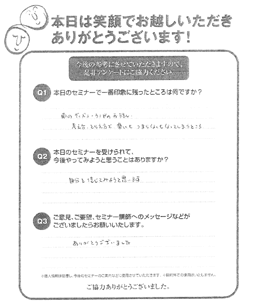 本日は笑顔でお越しいただき
ありがとうございます!
今後の参考にさせていただきますので、
是非アンケートにご協力ください
Q1 本日のセミナーで一番印象に残ったところは何ですか?
Q2 本日のセミナーを受けられて、
今後やってみようと思うことはありますか?
自分を信じてみようと思います
Q3 ご意見、ご要望、セミナー講師へのメッセージなどが
ございましたらお願いいたします。
ありがとうございました
ご協力ありがとうございました。